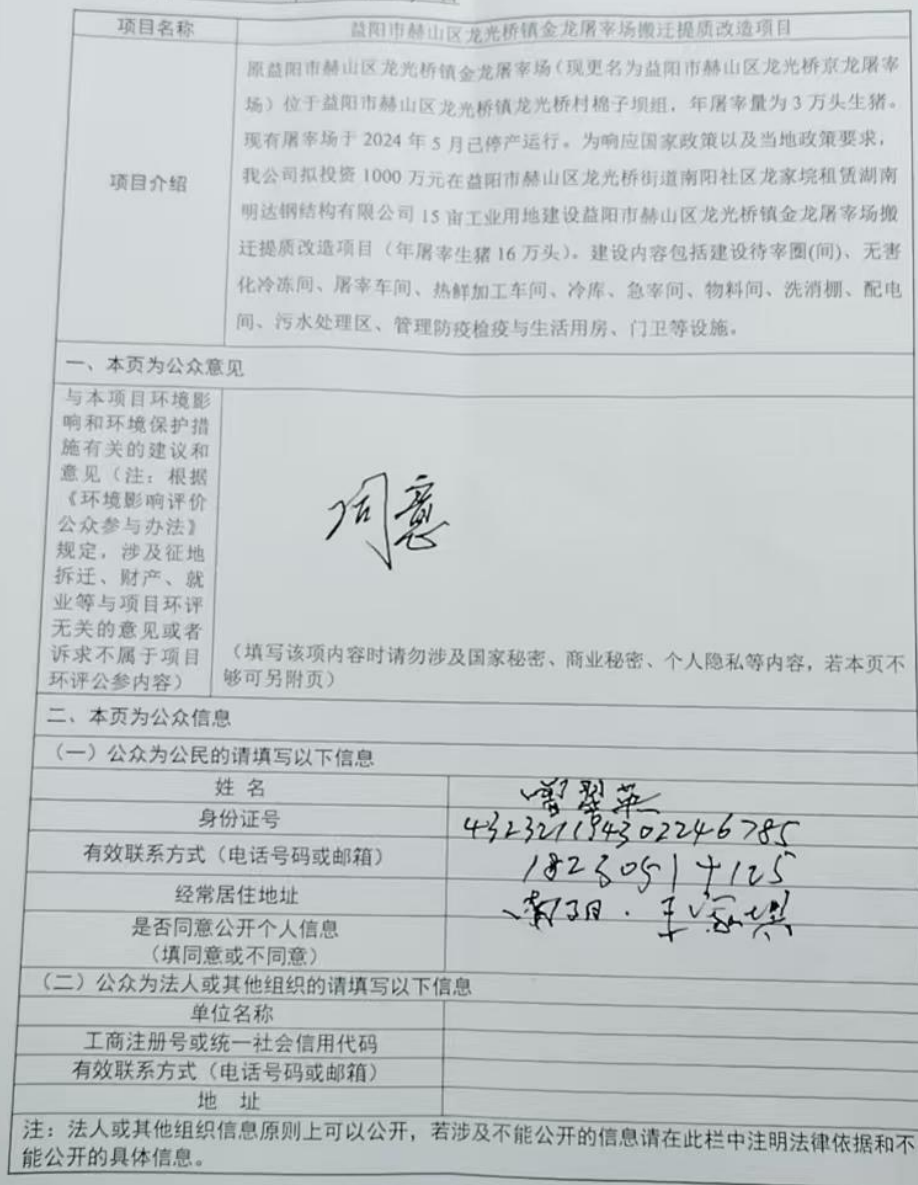 项目名称
益阳市赫山区龙光桥镇金龙屠宰场搬迁提质改造项目
项目介绍
原益阳市赫山区龙光桥镇金龙屠宰场（现更名为益阳市赫山区龙光桥京龙屠宰
场）位于益阳市赫山区龙光桥镇龙光桥村棉子坝组，年屠宰量为3万头生猪。
现有屠宰场于2024年5月已停产运行。为响应国家政策以及当地政策要求，
我公司拟投资1000万元在益阳市赫山区龙光桥街道南阳社区龙家垸租赁湖南
明达钢结构有限公司15亩工业用地建设益阳市赫山区龙光桥镇金龙屠宰场搬
迁提质改造项目（年屠宰生猪16万头）。建设内容包括建设待宰圈(间)、无害
化冷冻间、屠宰车间、热鲜加工车间、冷库、急宰间、物料间、洗消棚、配电
间、污水处理区、管理防疫检疫与生活用房、门卫等设施。
一、本页为公众意见
与本项目环境影
响和环境保护措
施有关的建议和
意见（注：根据
《环境影响评价
公众参与办法》
规定，涉及征地
拆迁、财产、就
业等与项目环评
无关的意见或者
诉求不属于项目
环评公参内容）
同意
（填写该项内容时请勿涉及国家秘密、商业秘密、个人隐私等内容，若本页不
够可另附页）
二、本页为公众信息
（一）公众为公民的请填写以下信息
姓 名
曾翠英
身份证号
432321194302246785
有效联系方式（电话号码或邮箱）
18230514125
经常居住地址
是否同意公开个人信息
（填同意或不同意）
（二）公众为法人或其他组织的请填写以下信息
单位名称
工商注册号或统一社会信用代码
有效联系方式（电话号码或邮箱）
地 址
注：法人或其他组织信息原则上可以公开，若涉及不能公开的信息请在此栏中注明法律依据和不
能公开的具体信息。